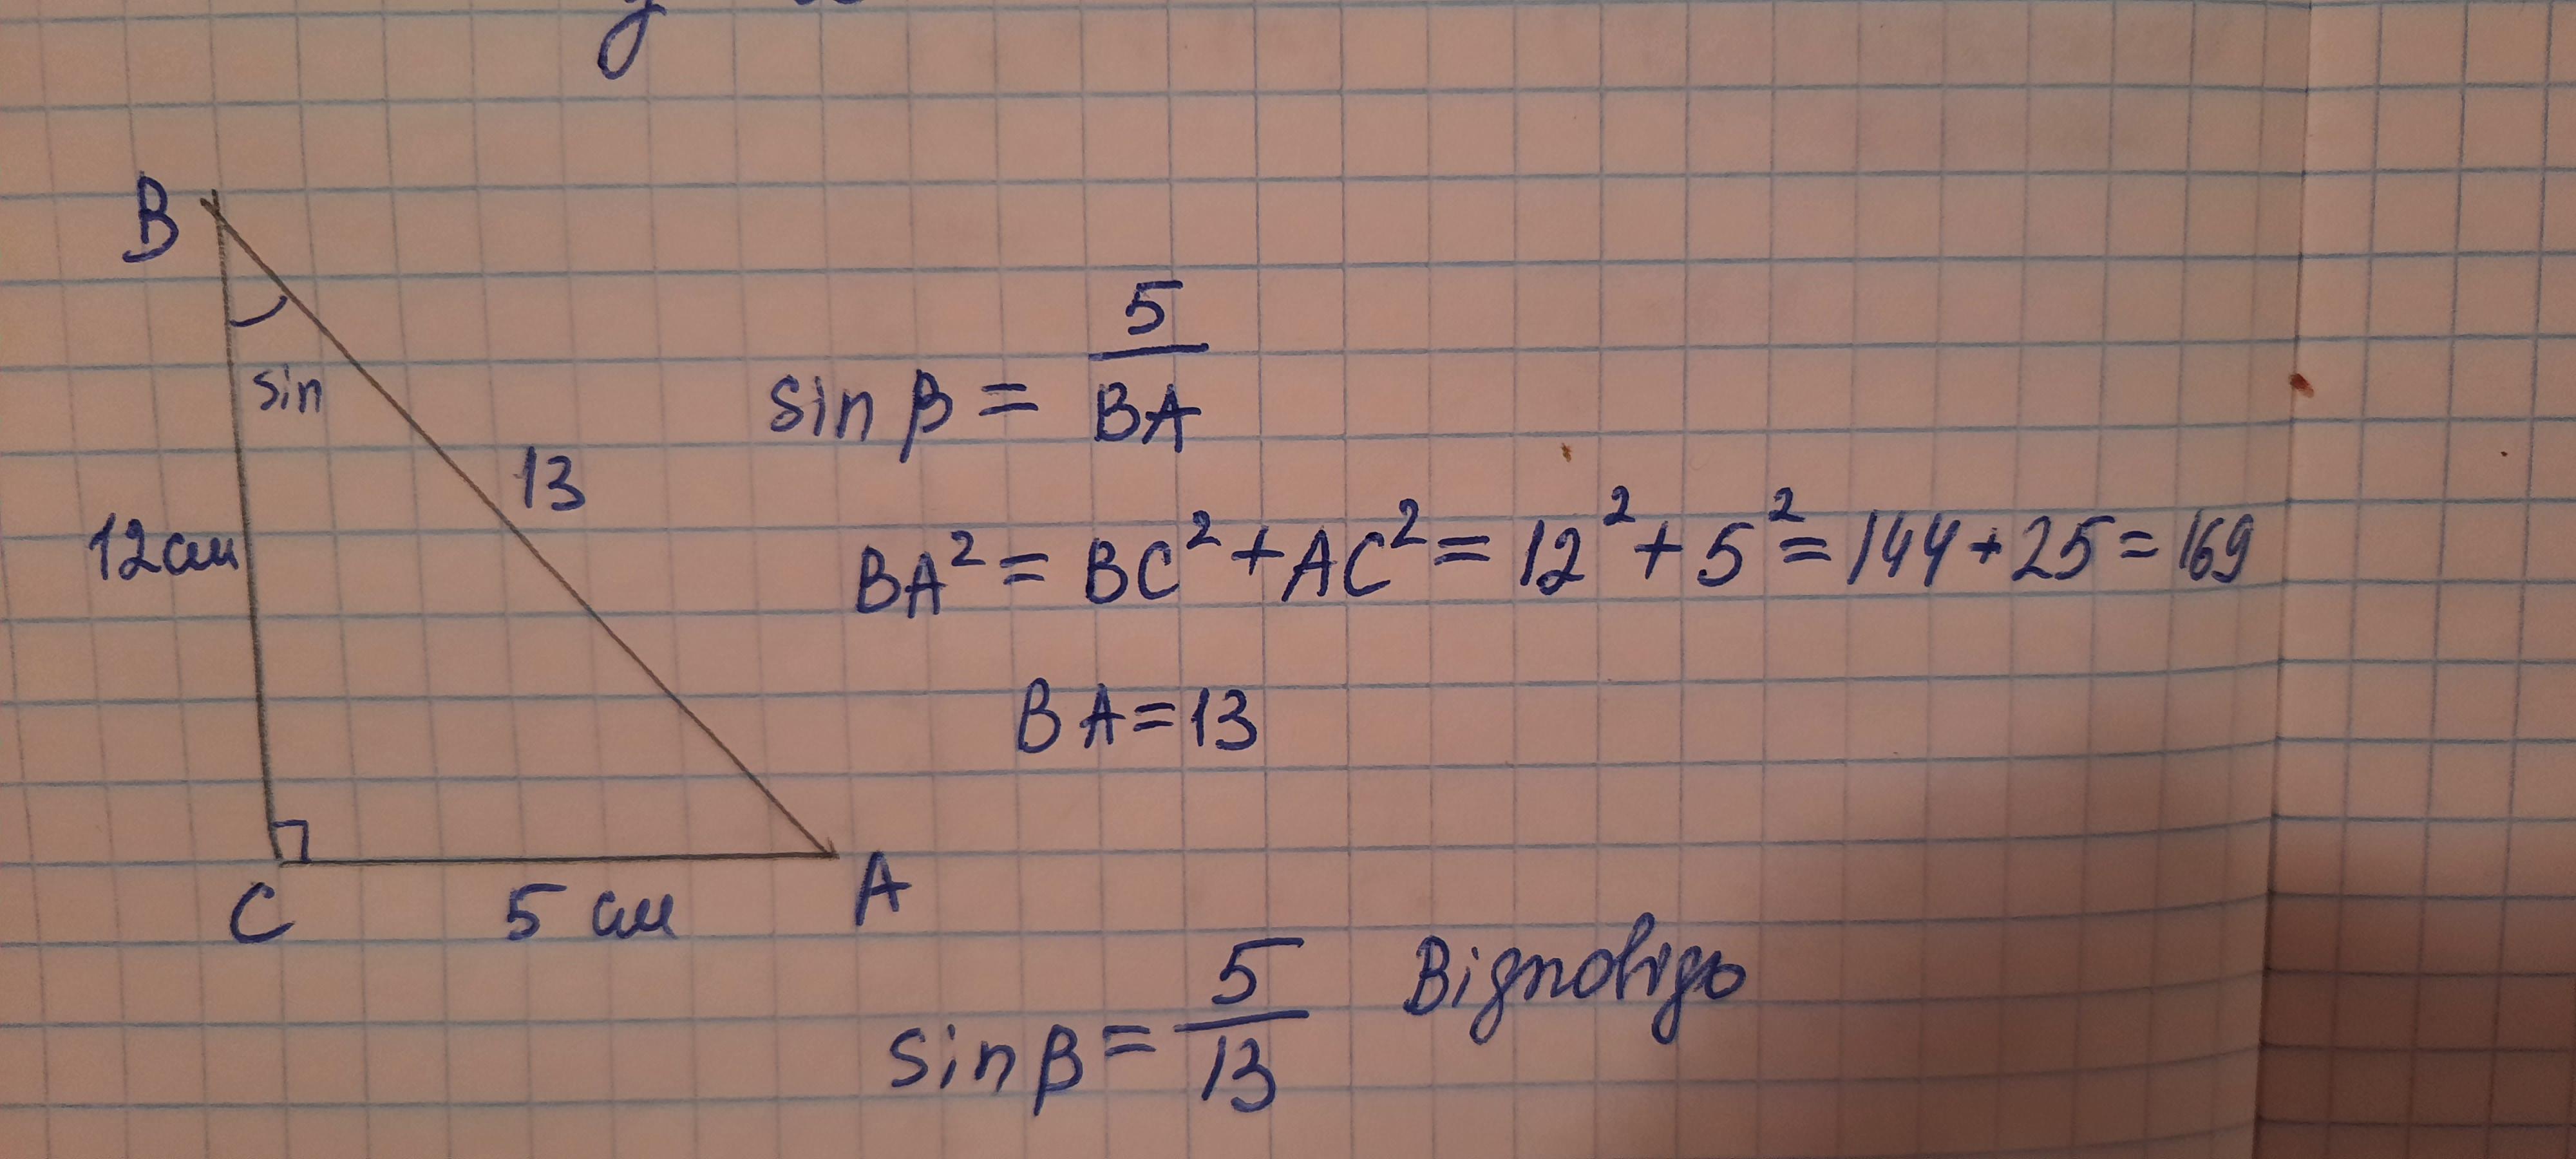 B
sin
13
12 см
C
5 см
A
sin β = 5/BA
BA² = BC² + AC² = 12² + 5² = 144 + 25 = 169
BA = 13
sin β = 5/13 Відповідь